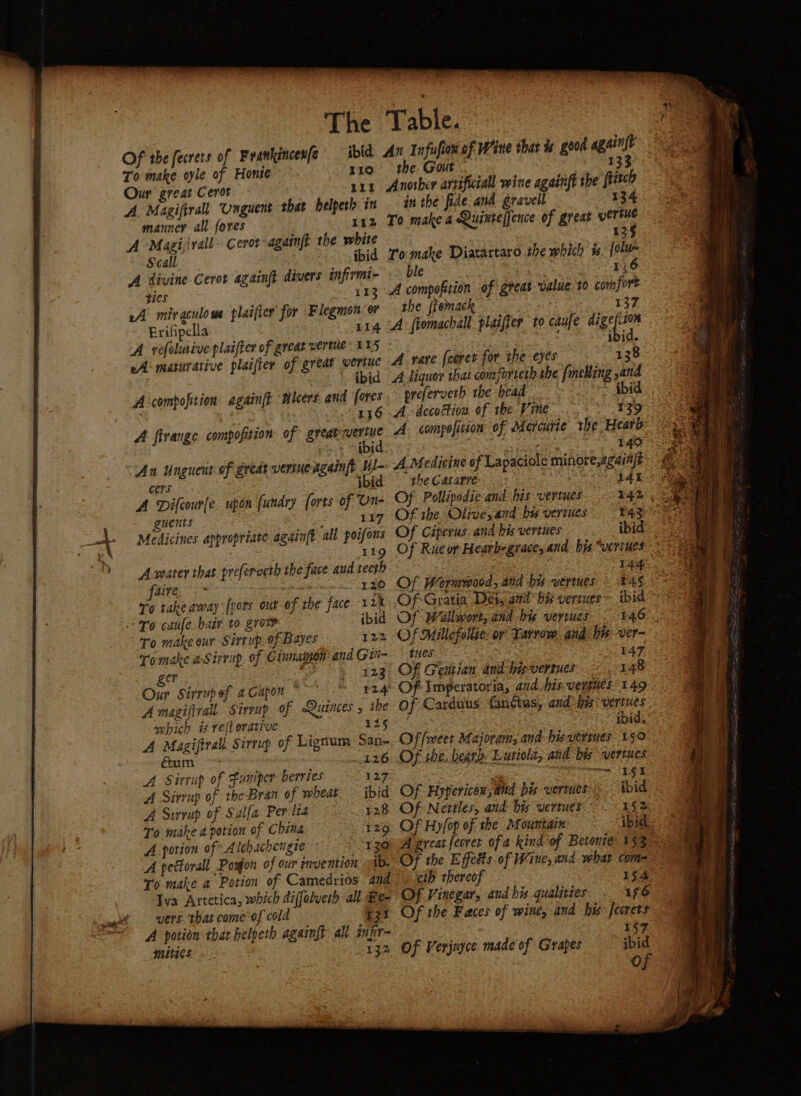 The Table.
Of the secrets of Frankincense ibid
To make oyle of Honie 110
Our great Cerot 111
A Magistrall Unguent that helpeth in
manner all sores 112
A Magistrall Cerot against the white
Scall ibid
A divine Cerot against divers infirmi-
ties 113
A miraculous plaister for Flegmon or
Erisipella 114
A resolutive plaister of great vertue 115
A maturative plaister of great vertue
ibid
A composition against Ulcers and sores
116
A strange composition of great vertue
ibid
An Unguent of great vertue against Ul-
cers ibid
A Discourse upon sundry sorts of Un-
guents 117
Medicines appropriate against all poisons
119
A water that preserveth the face and teeth
faire 120
To take away spots out of the face 121
To cause hair to grow ibid
To make our Sirrup of Bayes 122
To make a Sirrup of Cinnamon and Gin-
ger 123
Our Sirrup of a Capon 124
A magistrall Sirrup of Quinces, the
which is restorative 125
A Magistrall Sirrup of Lignum San-
ctum 126
A Sirrup of Juniper berries 127
A Sirrup of the Bran of wheat ibid
A Sirrup of Salsa Perlia 128
To make a potion of China 129
A potion of Alchachengie 130
A pectorall Potion of our invention ib.
To make a Potion of Camedrios and
Iva Artetica, which dissolveth all Fe-
vers that come of cold 131
A potion that helpeth against all infir-
mities 132
An Infusion of Wine that is good against
the Gout 133
Another artificiall wine against the stitch
in the side and gravell 134
To make a Quintessence of great vertue
135
To make Diatartaro the which is solu-
ble 136
A composition of great value to comfort
the stomack 137
A stomachall plaister to cause digestion
ibid.
A rare secret for the eyes 138
A liquor that comforteth the smelling, and
preserveth the head ibid
A decoction of the Vine 139
A composition of Mercurie the Hearb
140
A Medicine of Lapaciole minore, against
the Catarre 141
Of Pollipodie and his vertues 142
Of the Olive, and his vertues 143
Of Ciperus and his vertues ibid
Of Rue or Hearbegrace, and his vertues
144
Of Wormwood, and his vertues 145
Of Gratia Dei, and his vertues ibid
Of Wallwort, and his vertues 146
Of Millefollie or Yarrow and his ver-
tues 147
Of Gentian and his vertues 148
Of Imperatoria, and his vertues 149
Of Carduus sanctus, and his vertues
ibid.
Of sweet Majoram, and his vertues 150
Of the hearb Lutiola, and his vertues
151
Of Hypericon, and his vertues ibid
Of Nettles, and his vertues 152
Of Hysop of the Mountain ibid.
A great secret of a kind of Betonie 153
Of the Effects of Wine, and what com-
eth thereof 154
Of Vinegar, and his qualities 156
Of the Faeces of wine, and his secrets
157
Of Verjuyce made of Grapes ibid
Of